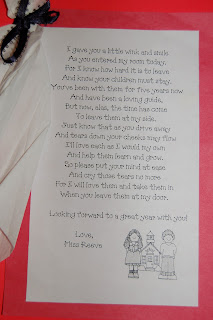 I gave you a little wink and smile
As you entered my room today.
For I know how hard it is to leave
And know your children must stay.
You've been with them for five years now
And have been a loving guide,
But now, alas, the time has come
To leave them at my side.
Just know that as you drive away
And tears down your cheeks may flow
I'll love each as I would my own
And help them learn and grow.
So please put your mind at ease
And cry those tears no more
For I will love them and take them in
When you leave them at my door.
Looking forward to a great year with you!
Love,
Miss Reeve